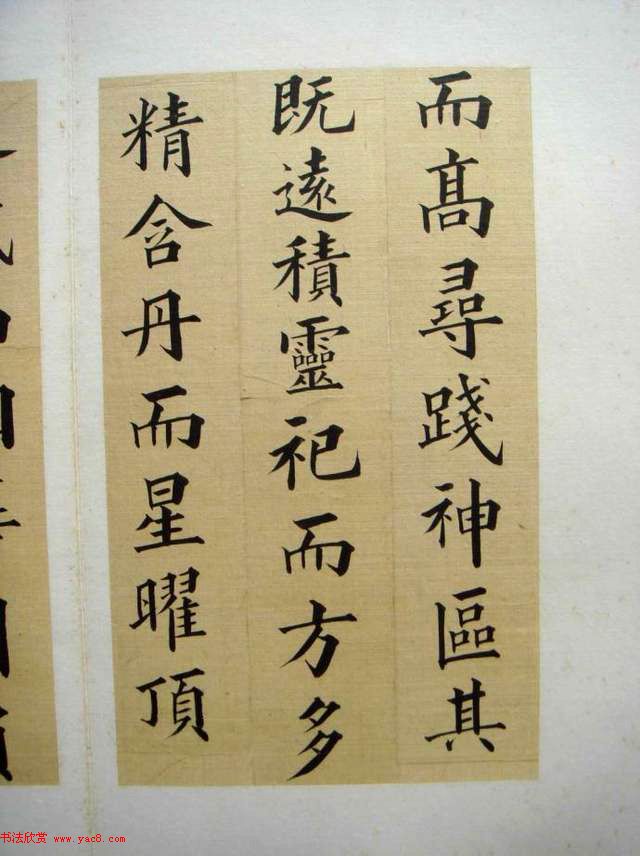 而高尋踐神區其
既遠積靈祀而方多
精含丹而星曜頂
书法欣赏 www.yac8.com